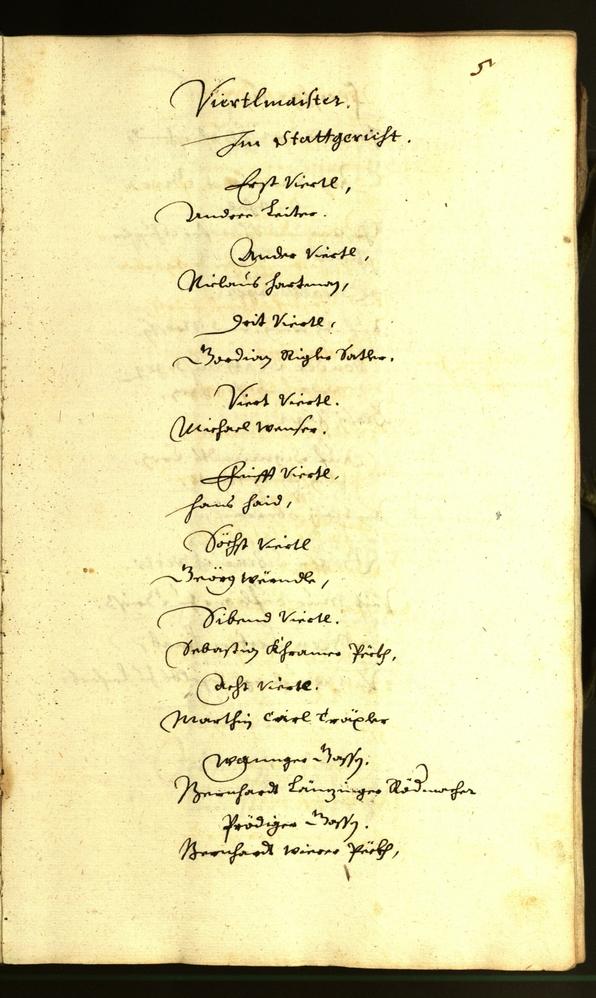 5
Viertlmaister.
Im Stattgericht.
Erst Viertl,
Andree Leiter.
Ander Viertl,
Niclaus Hartman,
Drit Viertl,
Gordian Rigler Satler.
Viert Viertl.
Michael Wenser.
Fünfft Viertl,
Hans Haid,
Söchst Viertl
Geörg Wörndle,
Sibend Viertl.
Sebastian Khramer Pöckh,
Acht Viertl.
Marthin Carl Träxler
Wannger Gassn.
Bernhardt Länzinger Rödmacher
Prödiger Gassn.
Bernhardt Wierer Pöckh,